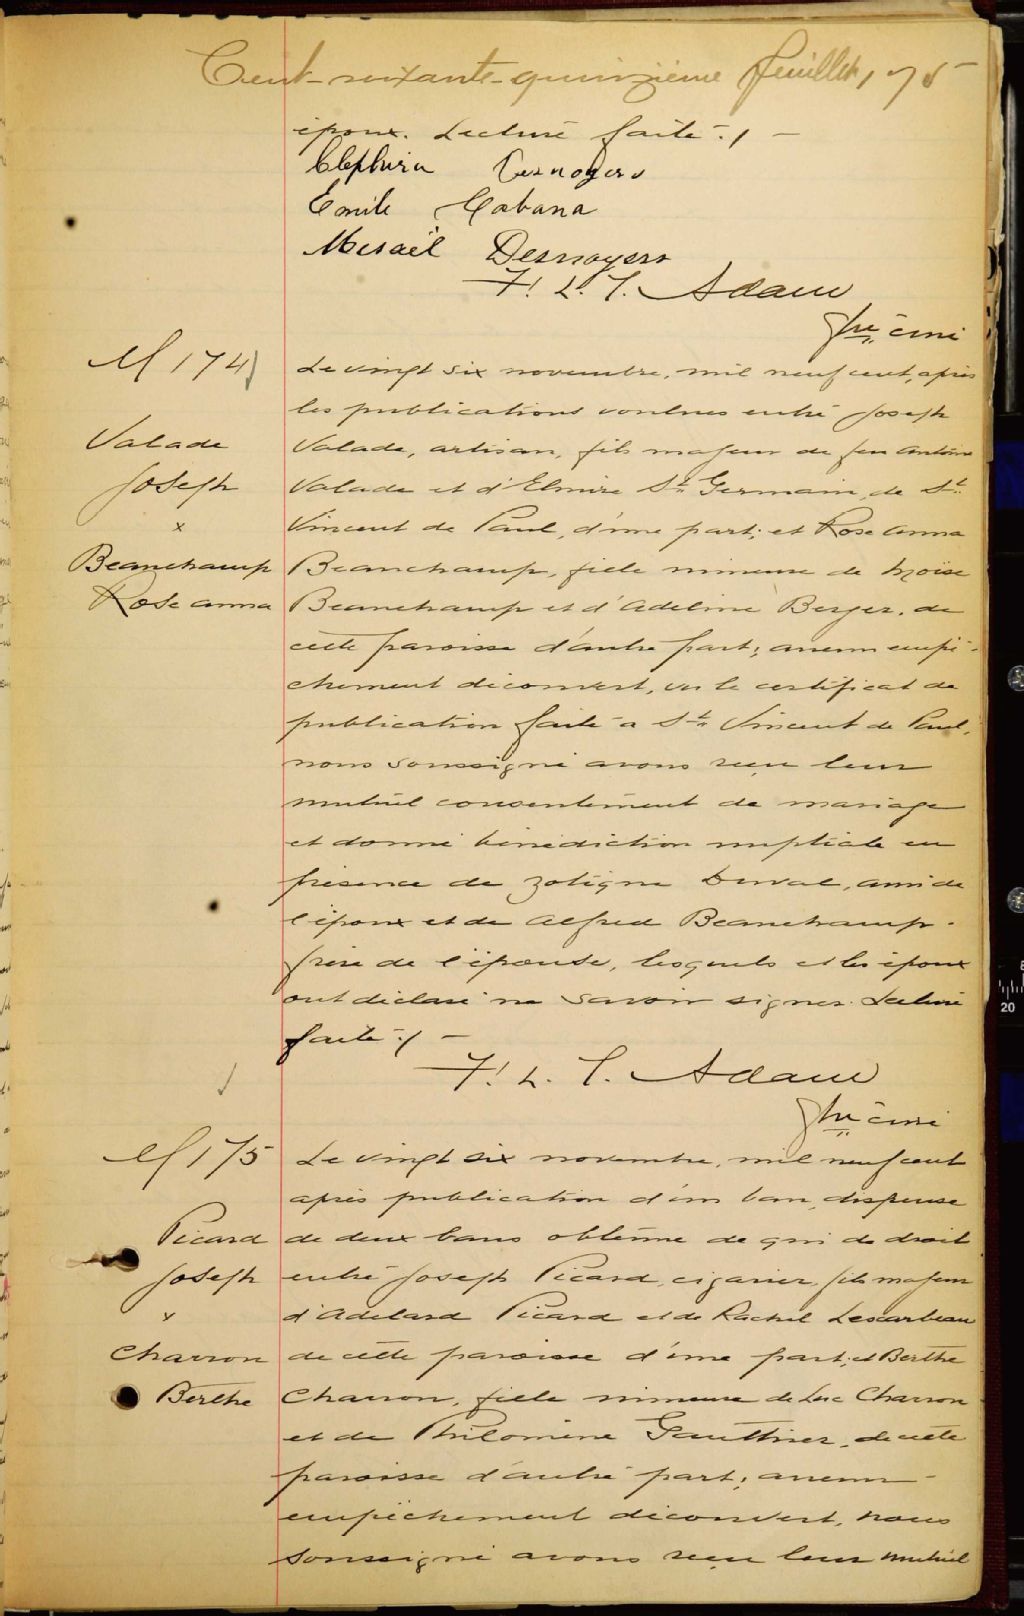 Cent-soixante-quinzième feuillet, 175
époux. Lecture faite ./ —
Cléphira Desnoyers
Emile Cabana
Misaël Desnoyers
F. L. T. Adam
Ptre curé
M 174
Le vingt six novembre, mil neuf cent, après
les publications voulues entre Joseph
Valade
Valade, artisan, fils majeur de feu Antoine
Joseph
Valade et d'Elmire St. Germain, de St.
x
Vincent de Paul, d'une part; et Rose anna
Beauchamp
Beauchamp, fille mineure de Moïse
Rose anna
Beauchamp et d'Adeline Berger, de
cette paroisse d'autre part; aucun empê-
chement découvert, vu le certificat de
publication faite à St. Vincent de Paul,
nous soussigné avons reçu leur
mutuel consentement de mariage
et donné bénédiction nuptiale en
présence de Zotique Duval, ami de
l'époux et de Alfred Beauchamp
frère de l'épouse, lesquels et les époux
ont déclaré ne savoir signer. Lecture
faite ./ —
F. L. T. Adam
Ptre curé
M 175
Le vingt six novembre, mil neuf cent
après publication d'un ban, dispense
Picard
de deux bans obtenue de qui de droit
Joseph
entre Joseph Picard, cigarier, fils majeur
x
d'Adélard Picard et de Rachel Lescarbeau
Charron
de cette paroisse d'une part; et Berthe
Berthe
Charron, fille mineure de Luc Charron
et de Philomène Gauthier, de cette
paroisse d'autre part; aucun
empêchement découvert, nous
soussigné avons reçu leur mutuel